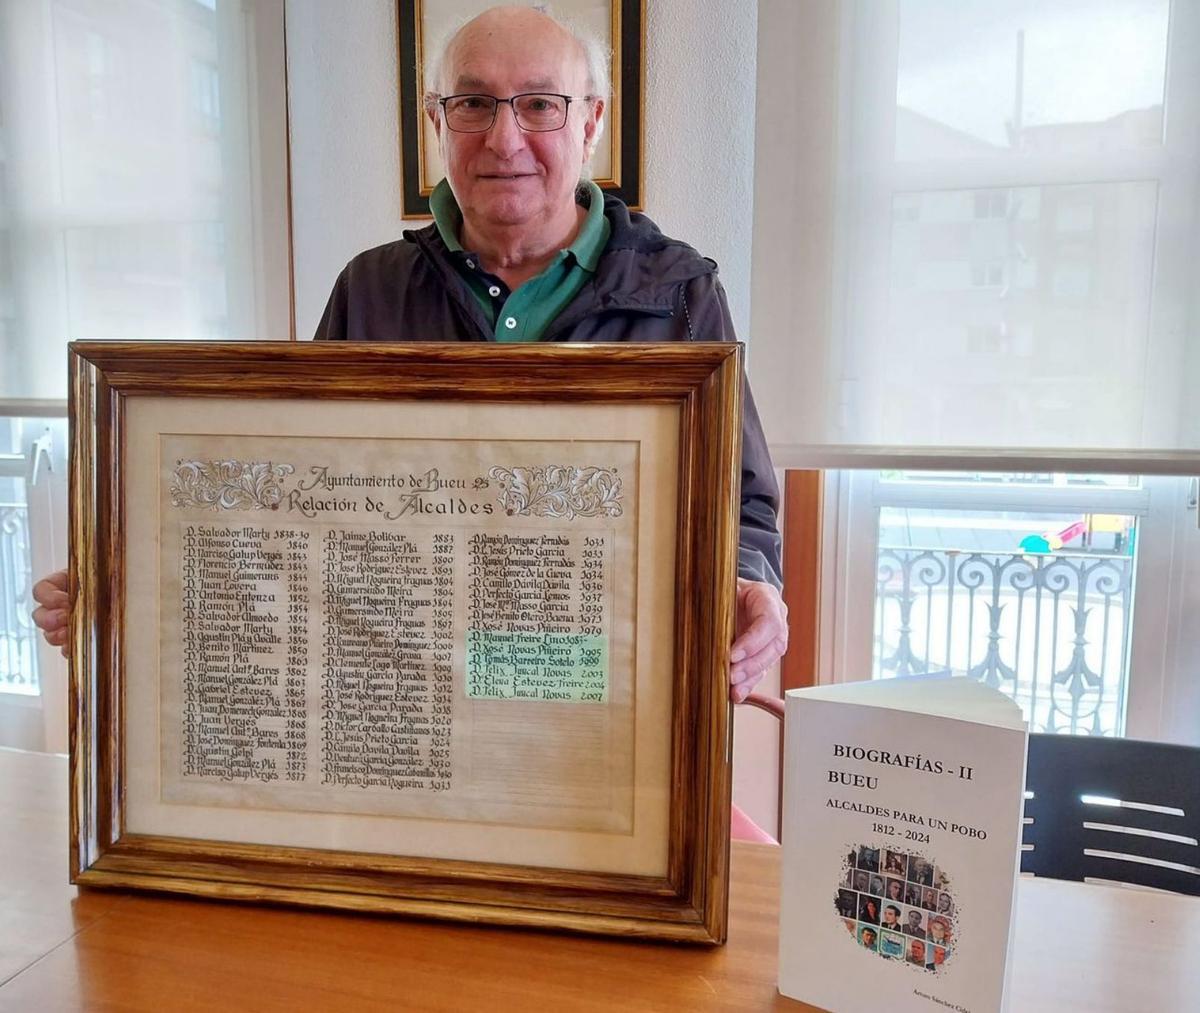 Ayuntamiento de Bueu
Relación de Alcaldes
D. Salvador Marty 1838-39
D. Alfonso Cueva 1840
D. Narciso Galup Vergés 1843
D. Florencio Bermúdez 1843
D. Manuel Guimeráns 1844
D. Juan Lovera 1846
D. Antonio Entenza 1852
D. Ramón Plá 1854
D. Salvador Almoedo 1854
D. Salvador Marty 1854
D. Agustín Plá y Ovalle 1856
D. Benito Martínez 1859
D. Ramón Plá 1863
D. Manuel Antº Bares 1862
D. Manuel González Plá 1863
D. Gabriel Estevez 1865
D. Manuel González Plá 1867
D. Juan Domeneck González 1868
D. Juan Vergés 1868
D. Manuel Antº Bares 1868
D. José Domínguez Fontenla 1869
D. Agustín Gelpi 1872
D. Manuel González Plá 1873
D. Narciso Galup Vergés 1877
D. Jaime Bolibar 1883
D. Manuel González Plá 1887
D. José Massó Ferrer 1890
D. José Rodríguez Estevez 1893
D. Miguel Nogueira Fraguas 1894
D. Gumersindo Meira 1894
D. Miguel Nogueira Fraguas 1894
D. Gumersindo Meira 1895
D. Miguel Nogueira Fraguas 1897
D. José Rodríguez Estevez 1902
D. Laureano Piñeiro Domínguez 1906
D. Manuel González Graña 1907
D. Clemente Lago Martínez 1909
D. Agustín García Parada 1910
D. Miguel Nogueira Fraguas 1912
D. José Rodríguez Estevez 1914
D. José García Parada 1918
D. Miguel Nogueira Fraguas 1920
D. Víctor Carballo Castiñanes 1923
D. L. Jesús Prieto García 1924
D. Camilo Davila Davila 1925
D. Ventura García González 1930
D. Francisco Domínguez Cabanillas 1930
D. Perfecto García Nogueira 1931
D. Ramón Domínguez Ferradás 1931
D. L. Jesús Prieto García 1933
D. Ramón Domínguez Ferradás 1934
D. José Gómez de la Cueva 1934
D. Camilo Dávila Dávila 1936
D. Perfecto García Lemos 1937
D. José Mª Masso García 1939
D. José Benito Otero Baena 1973
D. Xosé Novas Piñeiro 1979
D. Manuel Freire Lino 1983-
D. Xosé Novas Piñeiro 1995
D. Tomás Barreiro Sotelo 1999
D. Félix Juncal Novas 2003
D. Elena Estevez Freire 2004
D. Félix Juncal Novas 2007
BIOGRAFÍAS - II
BUEU
ALCALDES PARA UN POBO
1812 - 2024
Arturo Sánchez